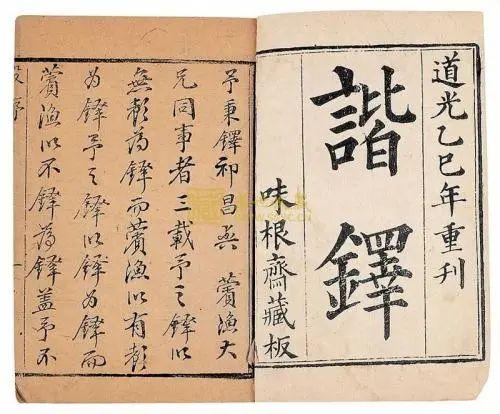 道光乙巳年重刊
諧鐸
味根齋藏板
予秉鐸祁昌與 薲漁大
兄同事者三載予之鐸以
無聲為鐸而薲漁以有聲
為鐸予之鐸以鐸為鐸而
薲漁以不鐸為鐸蓋予不
殷序
一